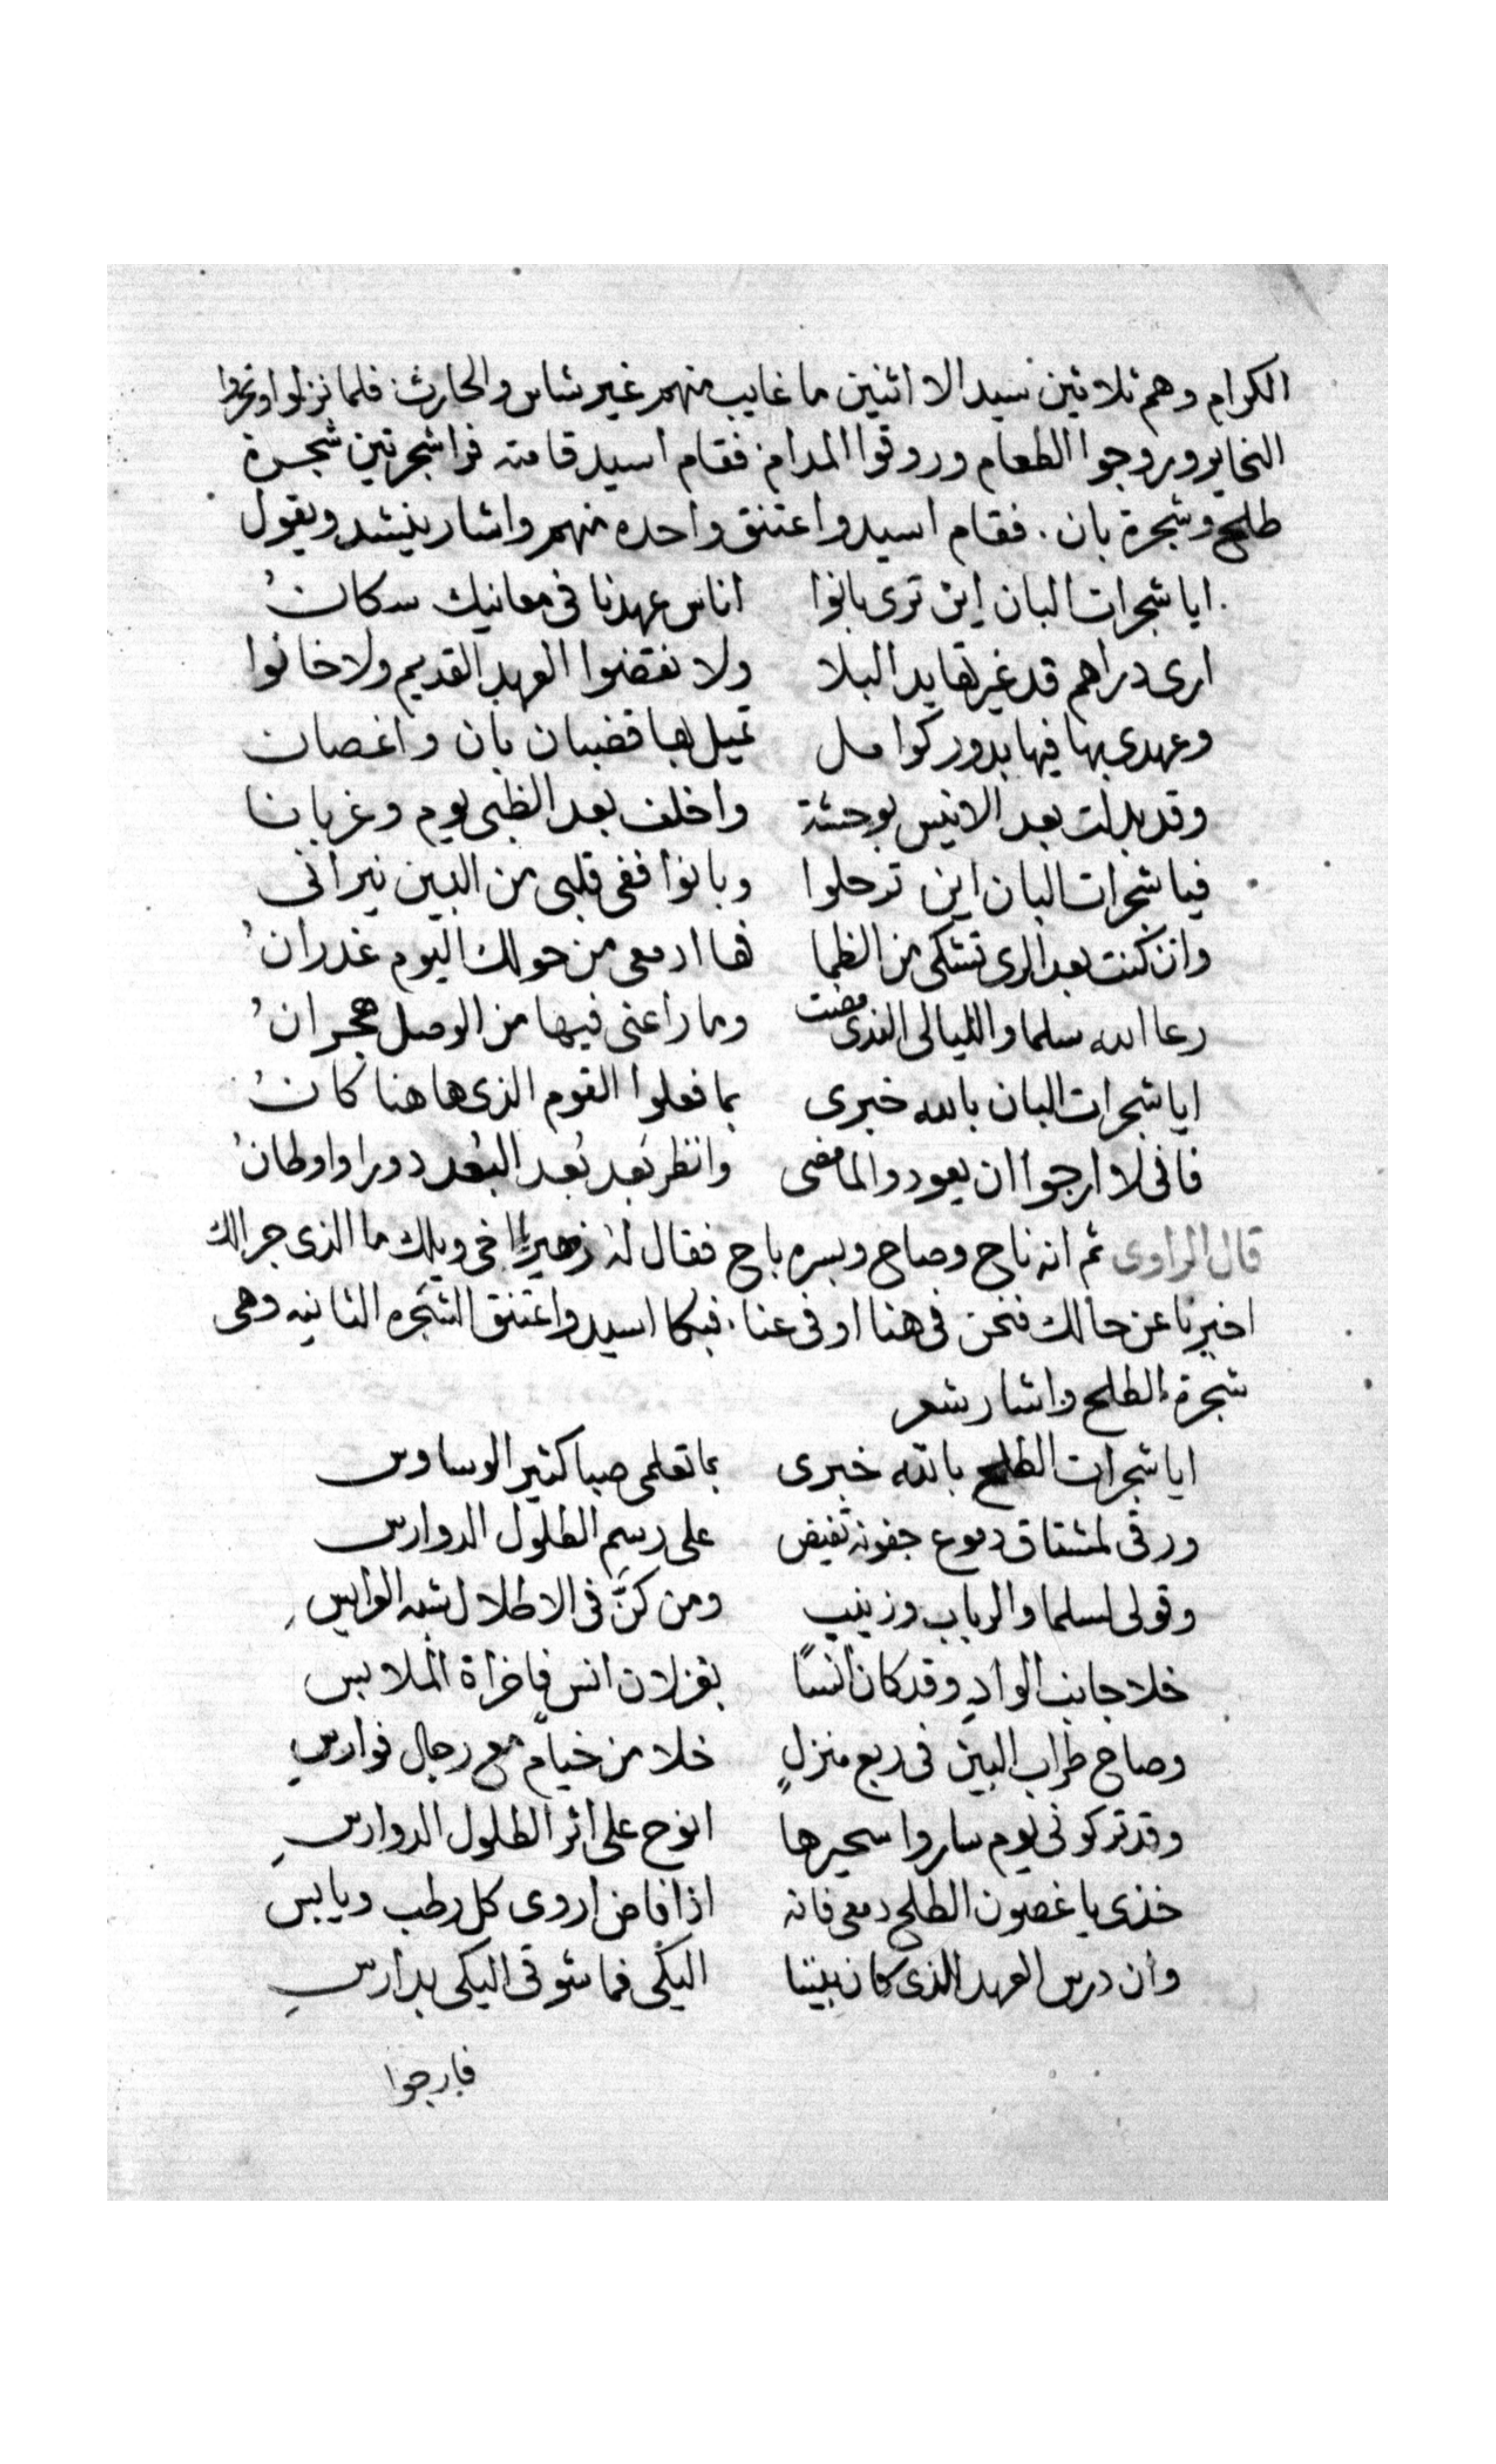 الكرام وهم ثلاثين سيد الا اثنين ما غايب منهم غير شاس والحارث فلما نزلوا ونحروا
النحاير وروجوا الطعام وروقوا المدام فقام اسيد قامته فرا شجرتين شجرة
طلح وشجرة بان . فقام اسيد واعتنق واحده منهم واشار ينشد ويقول
ايا شجرات البان اين ترى بانوا اناس عهدنا فى معانيك سكانُ
ارى دراهم قد غيرتها يد البلا ولا نقضوا العهد القديم ولا خانوا
وعهدى بها فيها بدور كوامل تميل بها قضبان بان واغصان
وقد بدلت بعد الانيس بوحشة واخلف بعد الظبى بوم وغربانا
فيا شجرات البان اين ترحلوا وبانوا ففى قلبى من البين نيرانى
وان كنت بعد الرى تشتكى من الظما فها ادمعى من حولك اليوم غدرانُ
رعا الله سلما والليالى الذى مضت وما راعنى فيها من الوصل هجرانُ
ايا شجرات البان بالله خبرى بما فعلوا القوم الذى هاهنا كانُ
فانى لا ارجوا ان يعودوا لما مضى وانظر بَعد بُعد البُعد دورا واوطانُ
قال الراوى ثم انه ناح وصاح وبسره باح فقال له زهير يا اخى ويلك ما الذى جرالك
اخبرنا عن حالك فنحن فى هنا او فى عنا . فبكا اسيد واعتنق الشجره الثانيه وهى
شجرة الطلح واشار شعر
ايا شجرات الطلح بالله خبرى بما تعلمى صبا كثير الوساوس
ورقى لمشتاق دموع جفونه تفيض على رسم الطلول الدوارس
وقولى لسلما والرباب وزينب ومن كنَّ فى الاطلال شبه العرايس
خلا جانب الوادِ وقد كان انسًا بغزلان انس فاخراة الملابس
وصاح غراب البين فى ربع منزلٍ خلا من خيامٍ مع رجال فوارسِ
وقد تركونى يوم ساروا سحيرها انوح على اثر الطلول الدوارسِ
خذى يا غصون الطلح دمعى فانه اذا فاض اروى كل رطب ويابس
وان درس العهد الذى كان بيننا اليكى فما شوقى اليكى بدارسِ
فارجوا